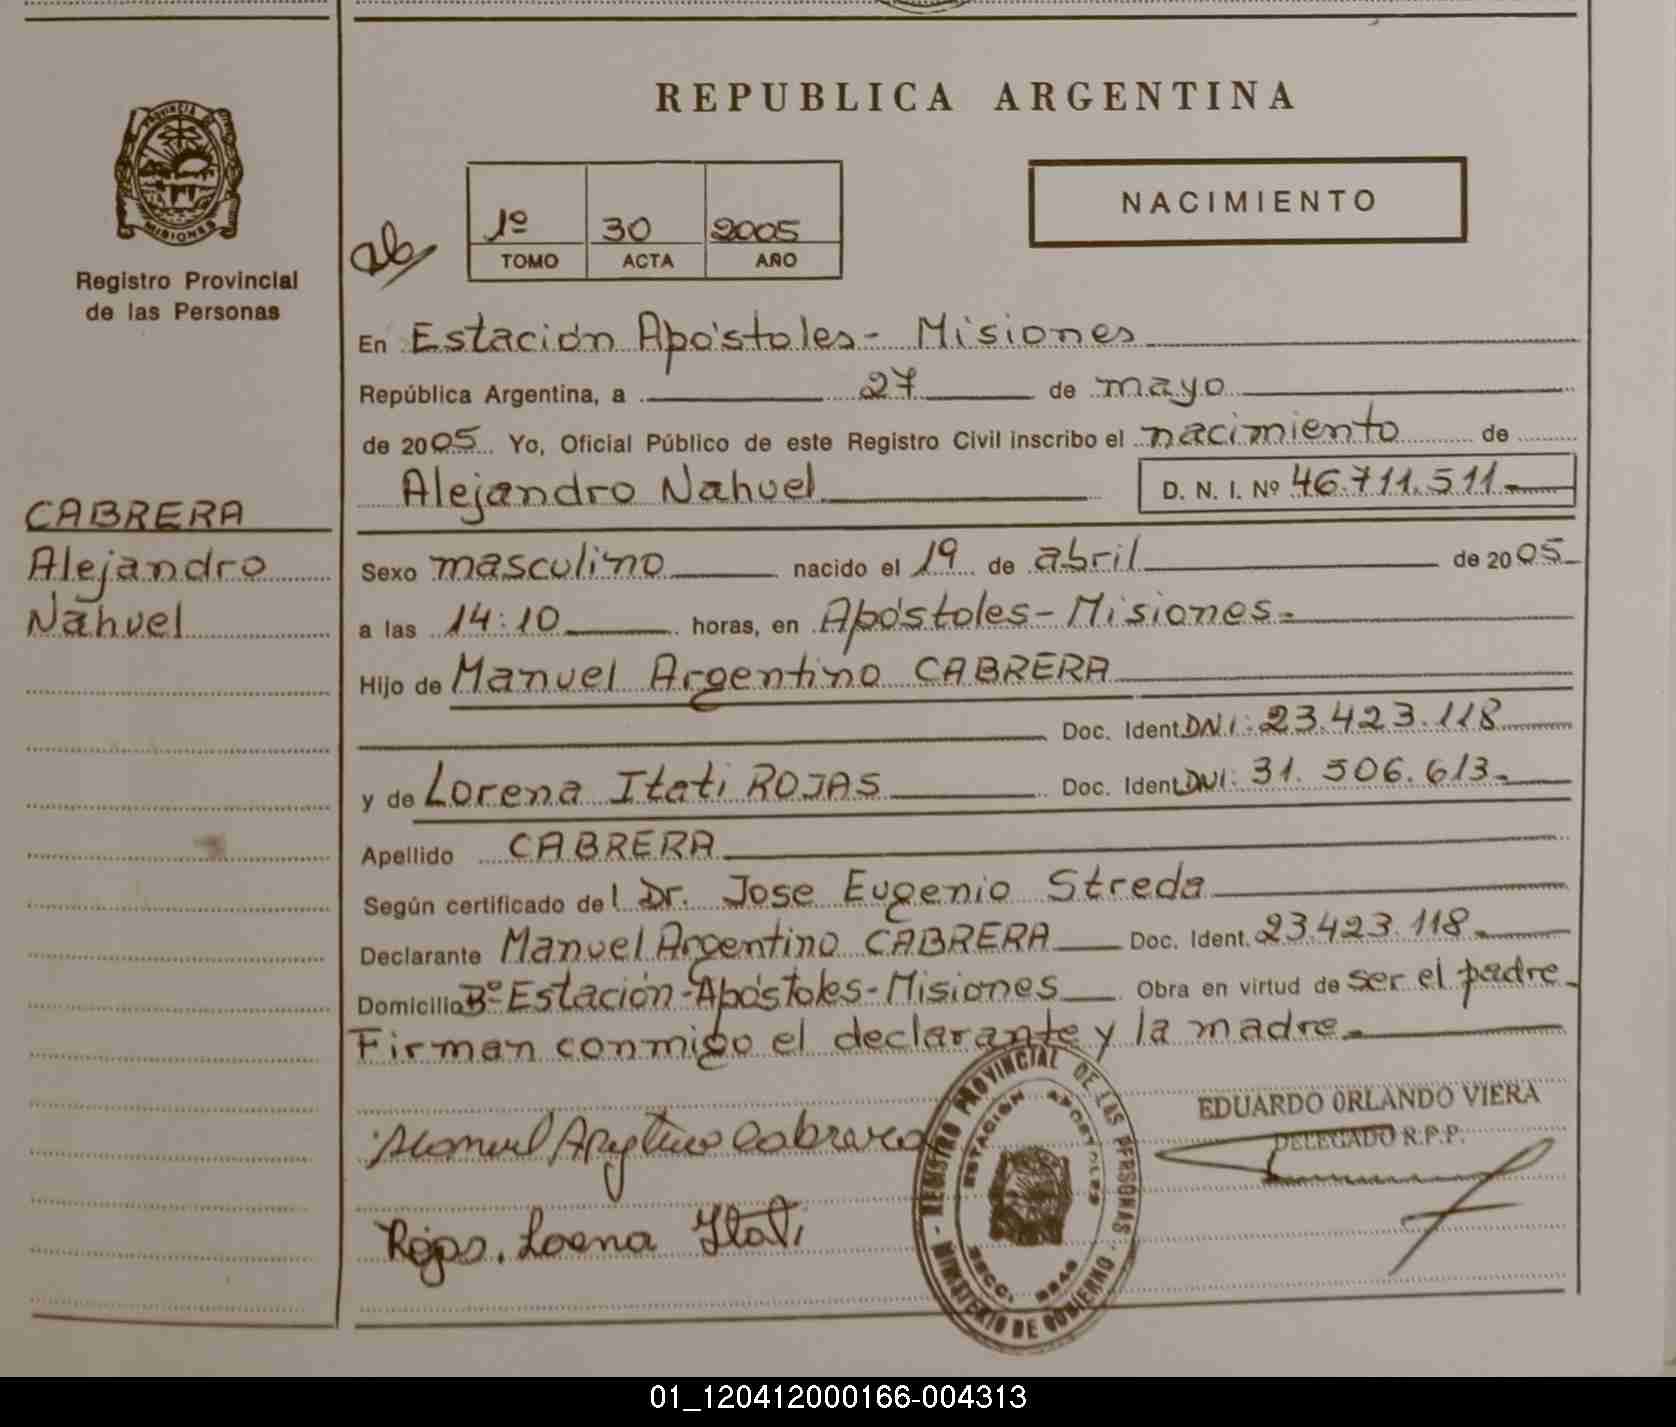 REPUBLICA ARGENTINA
PROVINCIA DE
MISIONES
Registro Provincial
de las Personas
NACIMIENTO
1º 30 2005
TOMO ACTA AÑO
En Estación Apóstoles - Misiones
República Argentina, a 27 de mayo
de 2005 Yo, Oficial Público de este Registro Civil inscribo el nacimiento de
Alejandro Nahuel D. N. I. Nº 46.711.511.-
CABRERA
Alejandro
Nahuel
Sexo masculino nacido el 19 de abril de 2005
a las 14:10 horas, en Apóstoles - Misiones.-
Hijo de Manuel Argentino CABRERA
Doc. Ident DNI: 23.423.118
y de Lorena Itati ROJAS Doc. Ident DNI: 31.506.613.-
Apellido CABRERA
Según certificado del Dr. Jose Eugenio Streda
Declarante Manuel Argentino CABRERA Doc. Ident. 23.423.118.-
Domicilio Bº Estación - Apóstoles - Misiones Obra en virtud de ser el padre.
Firman conmigo el declarante y la madre.-
EDUARDO ORLANDO VIERA
DELEGADO R.P.P.
Manuel Argentino Cabrera
Rojas. Lorena Itati
REGISTRO PROVINCIAL DE LAS PERSONAS
MINISTERIO DE GOBIERNO
ESTACION APOSTOLES
01_120412000166-004313